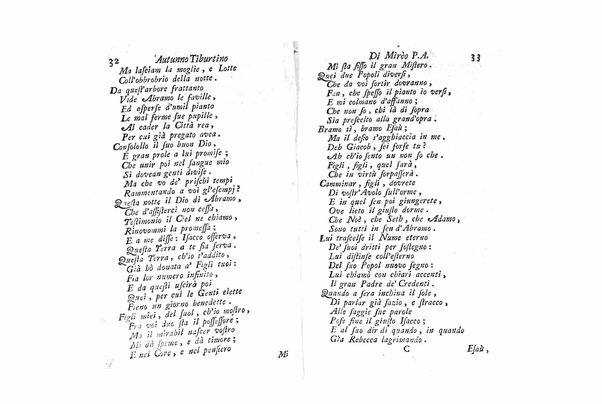 32 Autunno Tiburtino
Ma lasciam la moglie, e Lotte
Coll'obbrobrio della notte.
Da quest'arbore frattanto
Vide Abramo le faville,
Ed asperse d'umil pianto
Le mal ferme sue pupille,
Al cader la Città rea,
Per cui già pregato avea.
Consolollo il suo buon Dio,
E gran prole a lui promise;
Che unir poi nel sangue mio
Si dovean genti divise.
Ma che vo de' prischi tempi
Rammentando a voi gl'esempj?
Questa notte il Dio di Abramo,
Che d'assisterci non cessa,
Testimonio il Ciel ne chiamo,
Rinovommi la promessa;
E a me disse: Isacco osserva.
Questa Terra a te fia serva.
Questa Terra, ch'io t'addito,
Già hò donata a' Figli tuoi:
Fia lor numero infinito,
E da questi uscirà poi
Quei, per cui le Genti elette
Fieno un giorno benedette.
Figli miei, del suol, ch'io mostro,
Fra voi due sta il possessore;
Ma il mirabil nascer vostro
Mi dà speme, e dà timore;
E nel Core, e nel pensiero
Mi
Di Mirèo P.A. 33
Mi sta fisso il gran Mistero.
Quei due Popoli diversi,
Che da voi sortir dovranno,
Fan, che spesso il pianto io versi,
E mi colmano d'affanno;
Che non so, chi là di sopra
Sia prescelto alla grand'opra.
Bramo sì, bramo Esaù;
Ma il desio s'agghiaccia in me.
Deh Giacob, sei forse tu?
Ah ch'io sento un non so che.
Figli, figli, quel sarà,
Che in virtù sorpasserà.
Camminar, figli, dovrete
Di vostr'Avolo sull'orme,
E in quel sen poi giungerete,
Ove lieto il giusto dorme.
Che Noè, che Seth, che Adamo,
Sono tutti in sen d'Abramo.
Lui trascelse il Nume eterno
De' suoi dritti per sostegno:
Lui distinse coll'esterno
Del suo Popol nuovo segno:
Lui chiamò con chiari accenti,
Il gran Padre de' Credenti.
Quando a sera inchina il sole,
Di parlar già sazio, e stracco,
Alle sagge sue parole
Pose fine il giusto Isacco;
E al suo dir di quando, in quando
Gìa Rebecca lagrimando.
C Esaù,